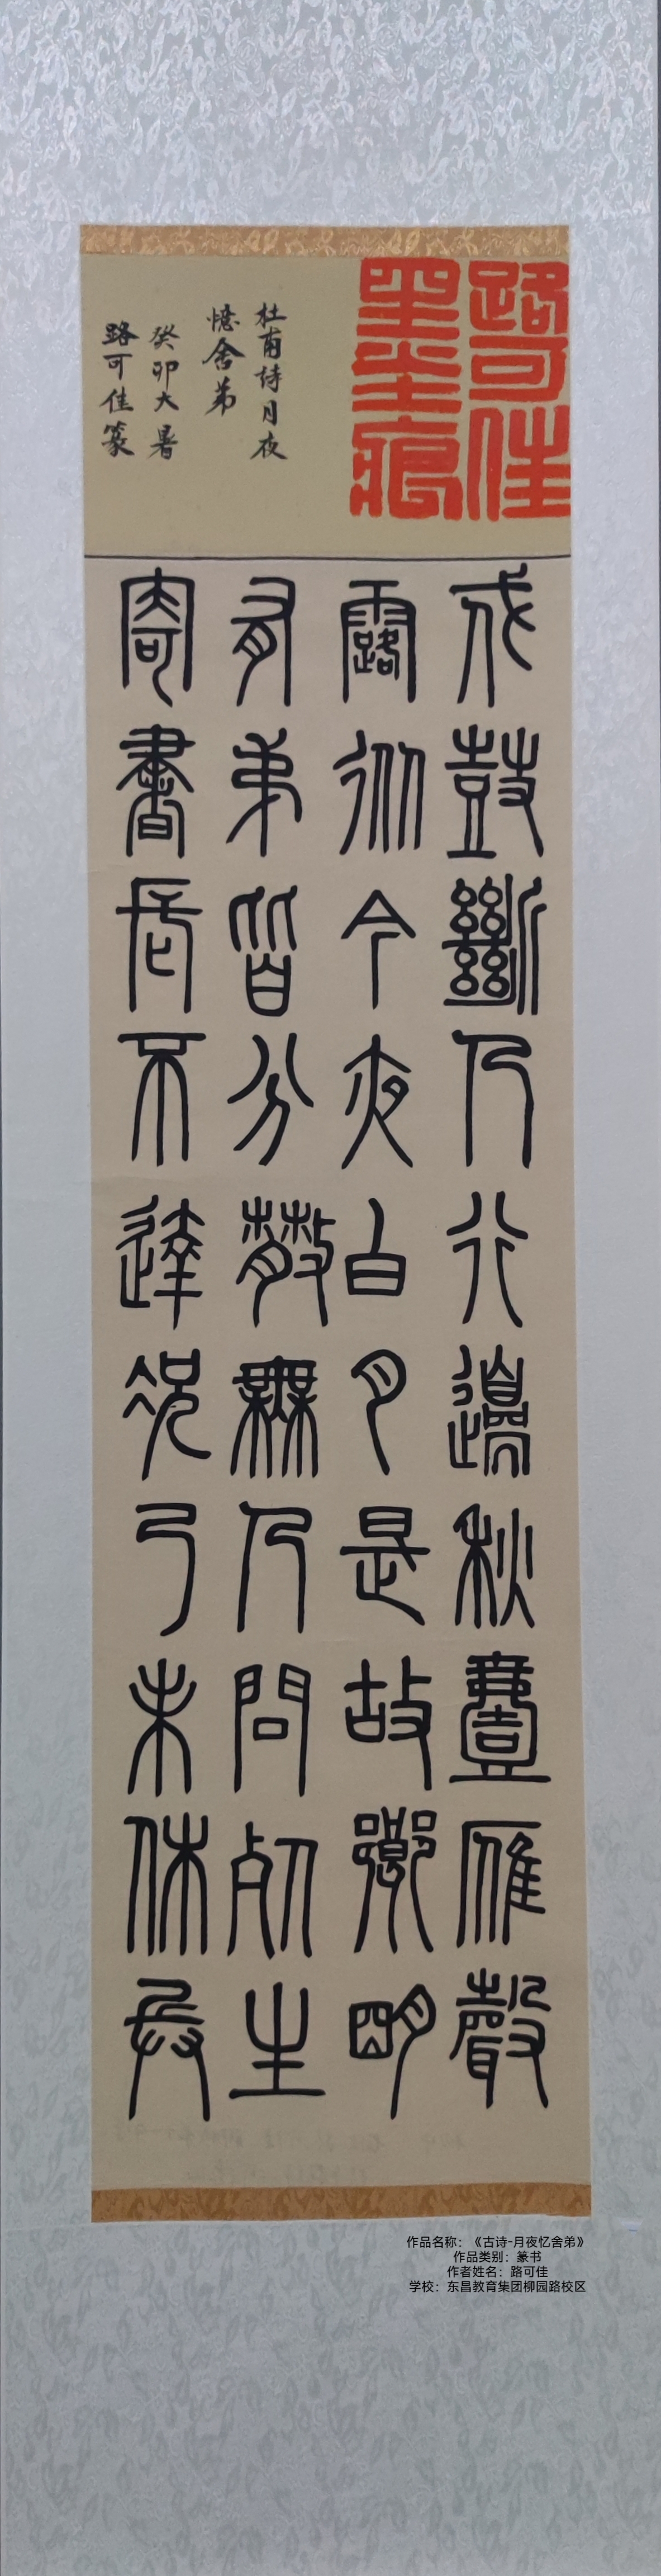 路可佳
墨痕
杜甫詩月夜
憶舍弟
癸卯大暑
路可佳篆
戍鼓斷人行邊秋壹雁聲
露從今夜白月是故鄉明
有弟皆分散無人問死生
寄書長不達況乃未休兵
作品名称：《古诗-月夜忆舍弟》
作品类别：篆书
作者姓名：路可佳
学校：东昌教育集团柳园路校区